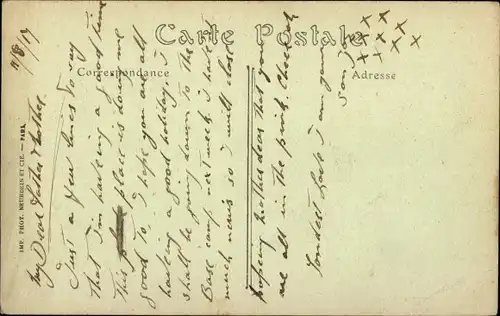 Carte Postale
Correspondance
Adresse
IMP. PHOT. NEURDEIN ET CIE. — PARIS
2/8/17
My Dear Father & Mother
Just a few lines to say
that I'm having a good time
this place is doing me
good to, I hope you are all
having a good holiday, I
shall be going down to the
Base camp next week. I have
much news so I will close
hoping Mother dear that you
are all in the pink, Cheer oh
Fondest Love I am your
Son
x x x x x x x x x x